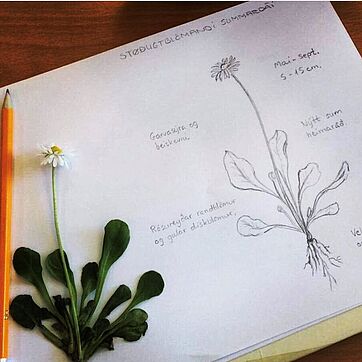 STØÐUGTBLÓMANDI SUMMARDÁI
Mai-sept.
5-15 cm.
Garvasýra og
beiskevni.
Nýtt sum
heimaráð.
Rósureyðar randblómur
og gular diskblómur.